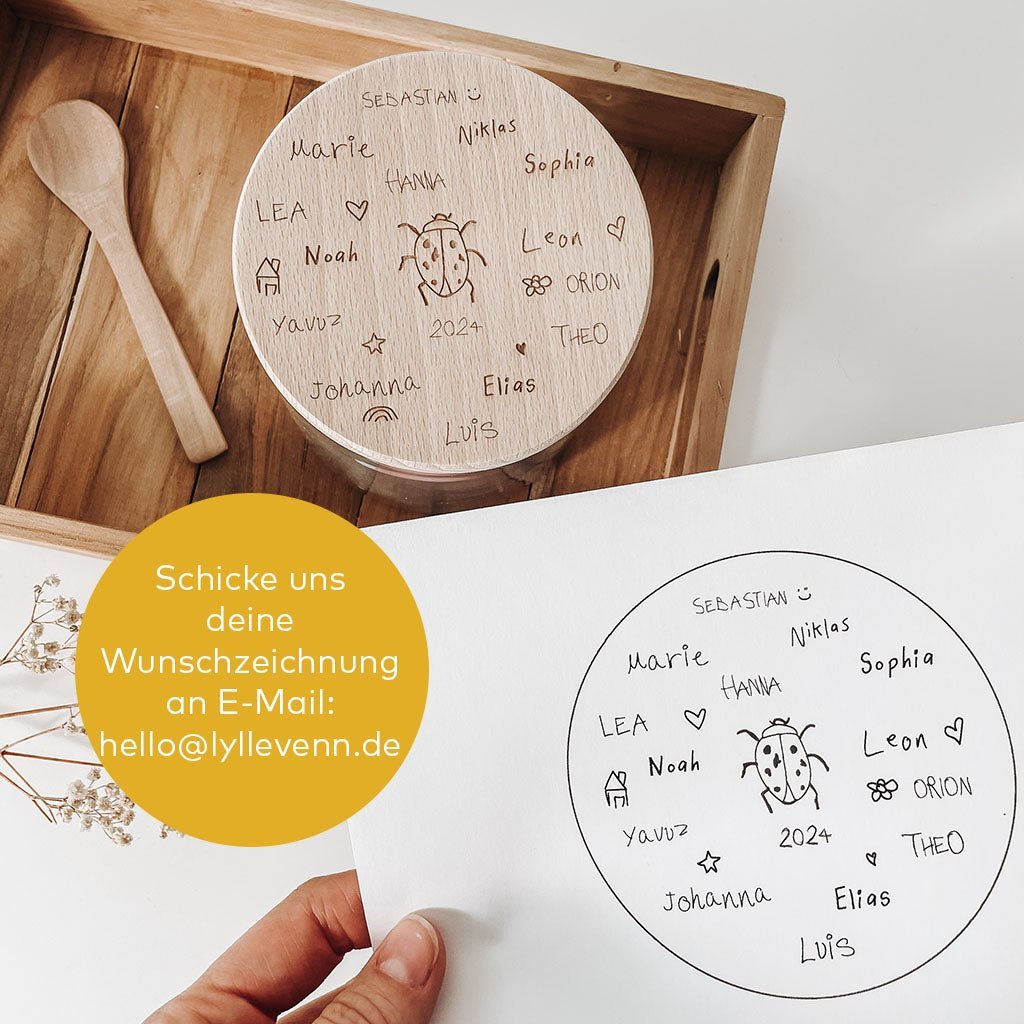 SEBASTIAN
Marie
Niklas
Sophia
HANNA
LEA
Noah
Leon
ORION
Yavuz
2024
THEO
Johanna
Elias
LUIS
Schicke uns
deine
Wunschzeichnung
an E-Mail:
hello@lyllevenn.de
SEBASTIAN
Niklas
Marie
Sophia
HANNA
LEA
Leon
Noah
ORION
Yavuz
2024
THEO
Johanna
Elias
LUIS